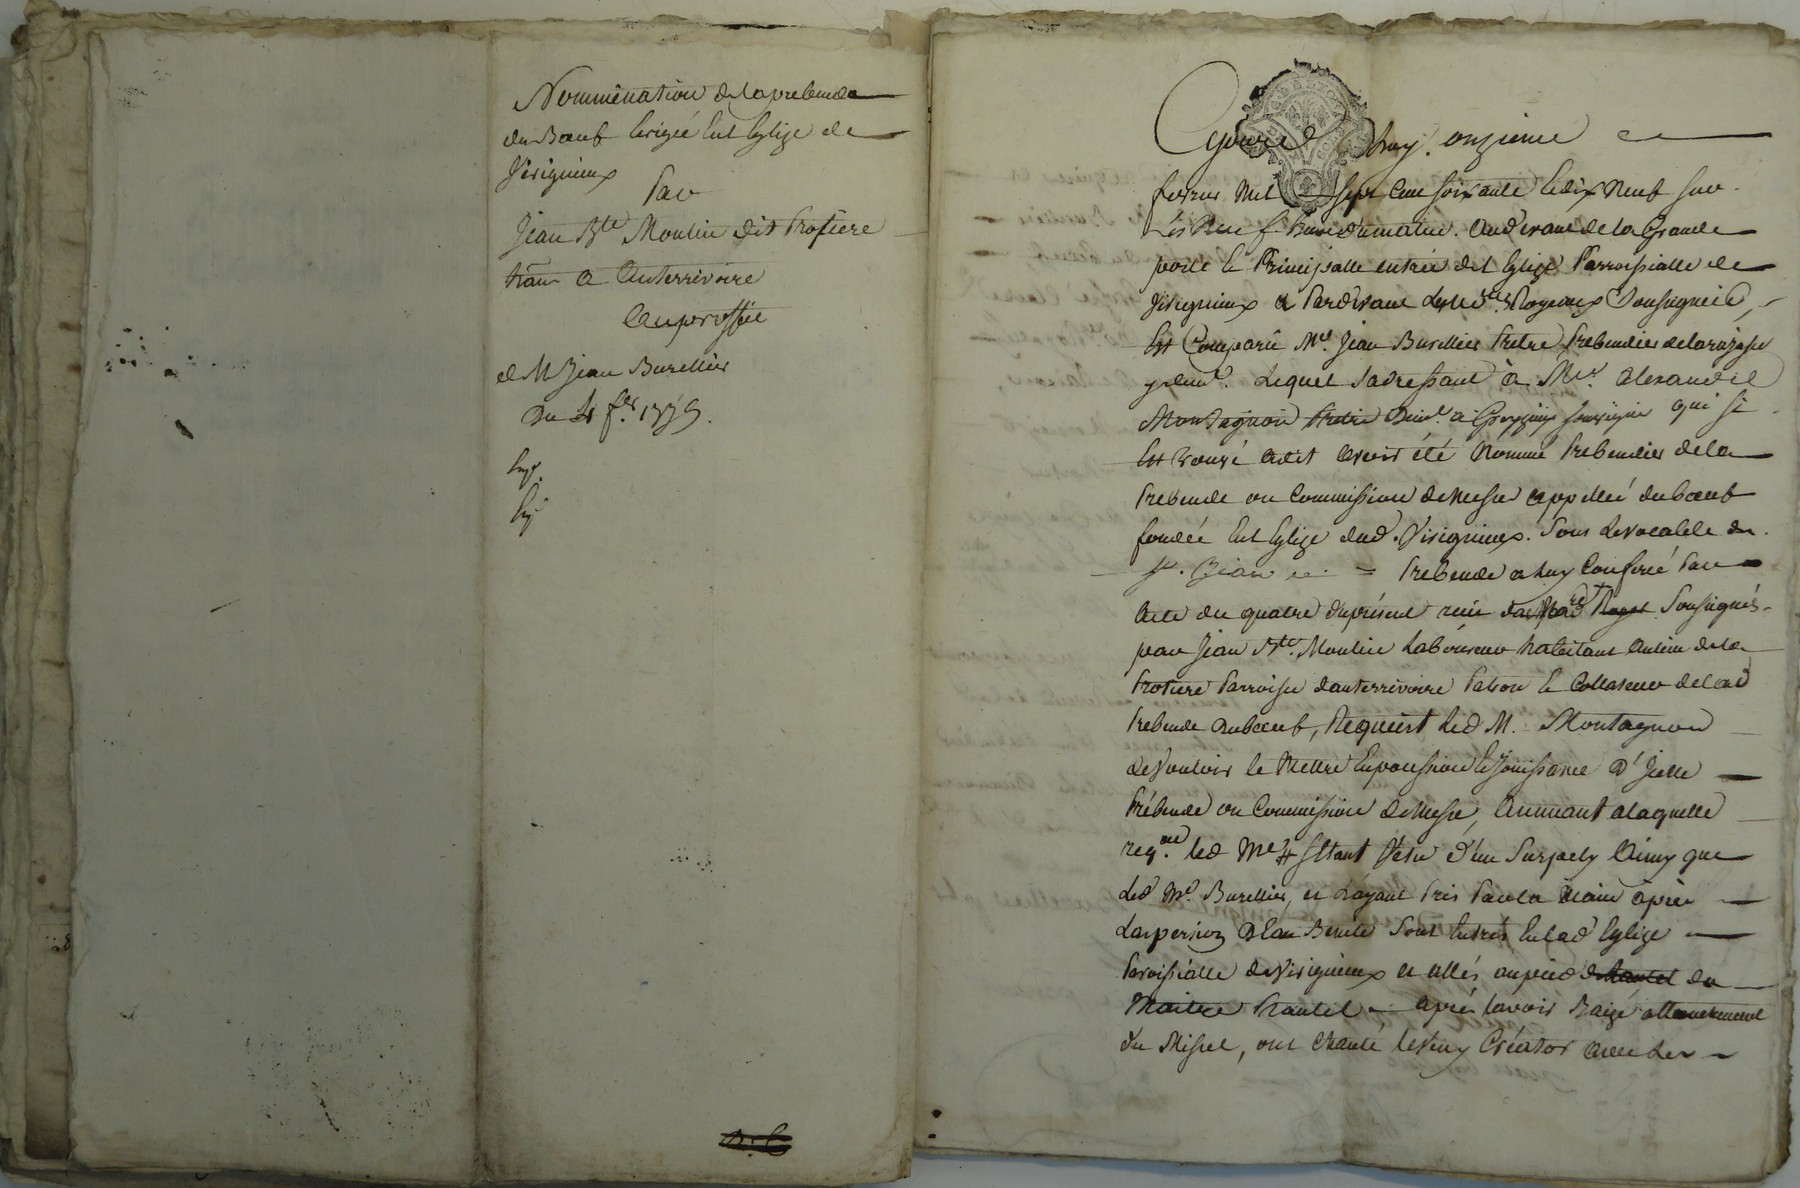 Nommination de la prebende
du Bœuf Erigée En l Eglize de
Virignieux
Par
Jean Bte Moulin dit Protiere
htant a Auterrivoire
En profit
de M Jean Burellier
Du 4 fer. 1779.
Cejourd huy onzieme
fevrier Mil sept Cent soixante et dix Neuf sur
Les heures du matin. Audevant de la Grande
porte et Principalle entrée de l Eglize Parroissialle de
Virignieux et Pardevant Les Nores Royeaux Soussignés,
Est Comparû Me. Jean Burellier Prêtre Prebendier
Lequel s'adressant à Mre. Alexandre
Montagnon Prêtre soussigné qui si
Est trouvé a dit avoir été Nommé Prebendier de la
Prebende ou Commission de Messes appellée du bœuf
fondée En l Eglize dud. Virignieux. Sous Le vocable de
St. Jean = Prebende a luy Conferé Par
Acte du quatre du présent reçu Soussignés
par Jean Bte. Moulin Laboureur habitant au lieu de la
Protiere Parroisse d'auterrivoire Patron et Collateur de lad
Prebende du bœuf, Requiert Led M. Montagnon
de Vouloir le Mettre En possession et Jouissance D'Icelle
Prébende ou Commission de Messe, Annuant a laquelle
reqon. led Me # Estant Vetu d'un Surpely Ainsy que
Led Me. Burellier, et L'ayant Pris Par la Main après
L'aspersion D Eau Benite Sont Entrés En lad Eglize
Parroissialle de Virignieux et allés au pied de Lautel du
Maitre hautel après lavoir Baizé
du Missel, ont Chanté le Veny Créator avec Les